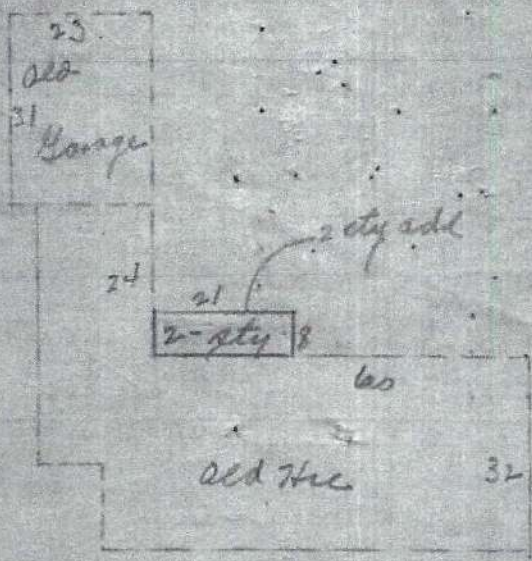 23
Old
31
Garage
2 sty add
24
21
2-sty
8
60
Old Hse
32